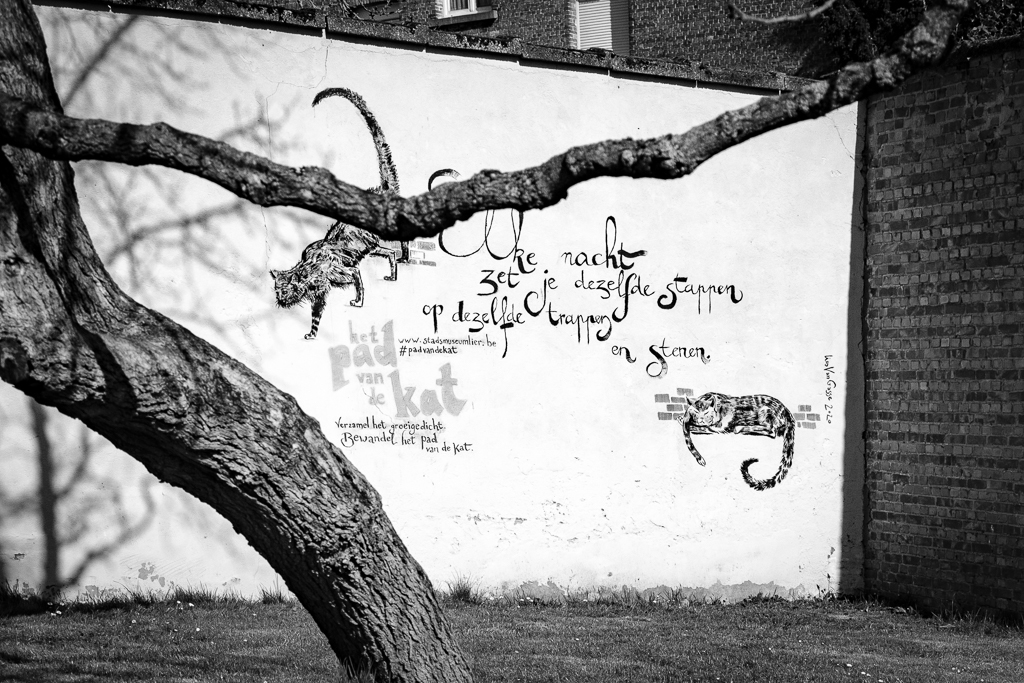 Elke nacht
zet je dezelfde stappen
op dezelfde trappen
en stenen.
het
pad
van
de
kat
www.stadsmuseumlier.be
#padvandekat
Verzamel het groeigedicht.
Bewandel het pad
van de kat.
2020